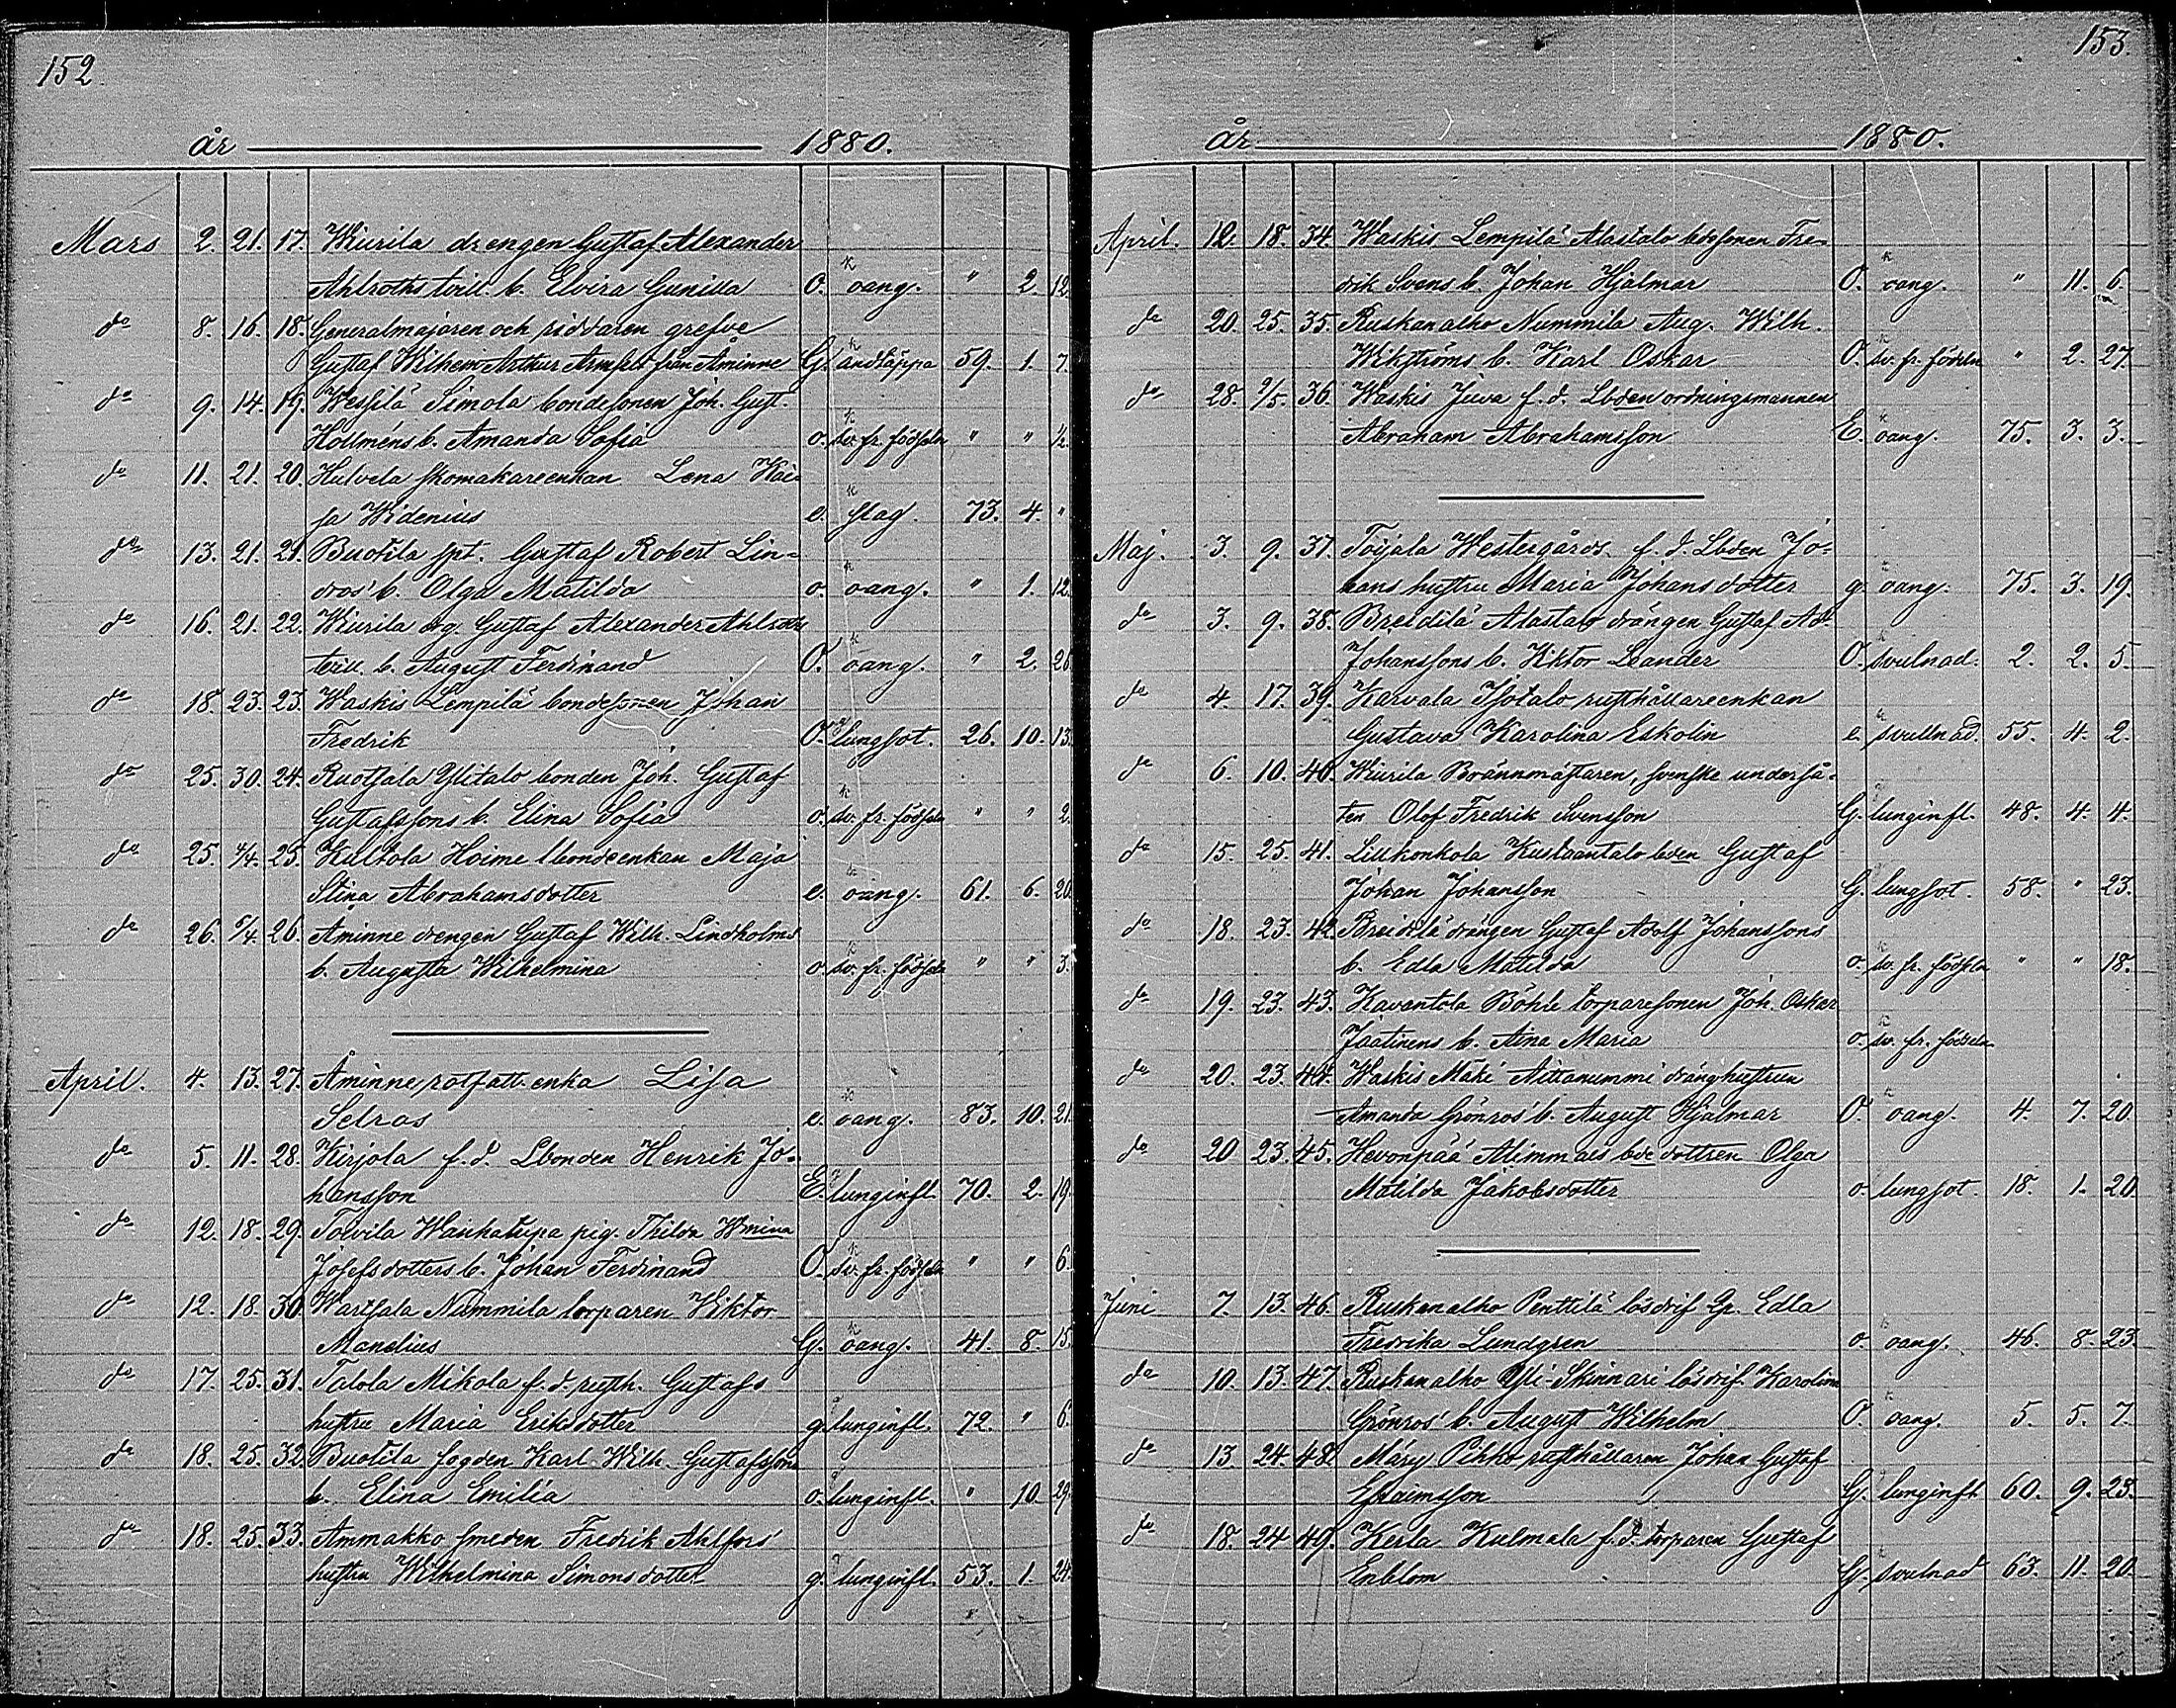 152.
år 1880.
Mars 2. 21. 17. Wiurila drengen Gustaf Alexander
Ahlroths tvill. b. Elvira Gunilla O. oang. " 2. 12.
do 8. 16. 18. Generalmajoren och riddaren grefve
Gustaf Wilhem Arthur Armfelt från Åminne G. andtäppa 59. 1. 7.
do 9. 14. 19. Wessilä Simola bondesonen Joh. Gust.
Hollméns b. Amanda Sofia o. sv. fr. födseln " " ½
do 11. 21. 20. Hulvela skomakareenkan Lena Kai-
sa Widenius e. slag. 73. 4. "
do 13. 21. 21. Buotila spt. Gustaf Robert Lin-
dros' b. Olga Matilda o. oang. " 1. 12.
do 16. 21. 22. Wiurila dg. Gustaf Alexander Ahlroths
tvill. b. August Ferdinand O. oang. " 2. 26
do 18. 23. 23. Waskis Lempilä bondesonen Johan
Fredrik O. lungsot. 26. 10. 13.
do 25. 30. 24. Ruotsala Ylitalo bonden Joh. Gustaf
Gustafssons b. Elina Sofia o. sv. fr. födseln " " 2.
do 25. 4/4. 25. Kultola Hoime lbondeenkan Maja
Stina Abrahamsdotter e. oang. 61. 6. 20.
do 26. 6/4. 26. Åminne drengen Gustaf Wilh. Lindholms
b. Augusta Wilhelmina o. sv. fr. födseln " " 3.
April. 4. 13. 27. Åminne rotfatt. enka Lisa
Selroos e. oang. 83. 10. 21.
do 5. 11. 28. Kirjola f.d. Lbonden Henrik Jo-
hansson E. lunginfl. 70. 2. 19.
do 12. 18. 29. Toivila Wanhatupa pig. Thilda Wmina
Josefsdotters b. Johan Ferdinand O. sv. fr. födseln " " 6.
do 12. 18. 30. Wartsala Nummila torparen Wiktor
Manelius G. oang. 41. 8. 15.
do 17. 25. 31. Talola Mikola f.d. rusth. Gustafs
hustru Maria Eriksdotter g. lunginfl. 72. " 6.
do 18. 25. 32. Buotila fogden Karl Wilh. Gustafssons
b. Elina Emilia o. lunginfl. " 10. 29.
do 18. 25. 33. Ammakko smeden Fredrik Ahlfors'
hustru Wilhelmina Simonsdotter g. lunginfl. 53. 1. 24.
153.
år 1880.
April. 12. 18. 34. Waskis Lempilä Alastalo bdesonen Fre-
drik Svens b. Johan Hjalmar O. oang. " 11. 6.
do 20. 25. 35. Ruskanalho Nummila Aug. Wilh.
Wikströms b. Karl Oskar O. sv. fr. födseln " 2. 27.
do 28. 2/5. 36. Waskis Juva f.d. Lbden ordningsmannen
Abraham Abrahamsson E. oang. 75. 3. 3.
Maj. 3. 9. 37. Toijala Westergårds f.d. Lbden Jo-
hans hustru Maria Johansdotter g. oang. 75. 3. 19.
do 3. 9. 38. Breidilä Alastalo drängen Gustaf Ad.
Johanssons b. Viktor Leander O. svulnad. 2. 2. 5.
do 4. 17. 39. Karvala Isotalo rusthållareenkan
Gustava Karolina Eskolin e. svullnad. 55. 4. 2.
do 6. 10. 40. Wiurila Brännmästaren, svenske underså-
ten Olof Fredrik Svensson G. lunginfl. 48. 4. 4.
do 15. 25. 41. Lillkonkola Kustaantalo bden Gustaf
Johan Johansson G. lungsot. 58. " 23.
do 18. 23. 42. Breidilä drängen Gustaf Adolf Johanssons
b. Edla Matilda o. sv. fr. födseln " " 18.
do 19. 23. 43. Kavantola Böhle torparesonen Joh. Oskar
Jaatinens b. Aina Maria o. sv. fr. födseln
do 20. 23. 44. Waskis Mäki Aittanummi dränghustrun
Amanda Grönros' b. August Hjalmar O. oang. 4. 7. 20.
do 20. 23. 45. Hevonpää Alimmais bde dottren Olga
Matilda Jakobsdotter o. lungsot. 18. 1. 20
Juni 7. 13. 46. Ruskanalho Penttilä lösdrif. Qp. Edla
Fredrika Lundgren o. oang. 46. 8. 23.
do 10. 13. 47. Ruskanalho Yli-Skinnari lösdrif. Karolina
Grönros' b. August Wilhelm O. oang. 5. 5. 7.
do 13. 24. 48. Märy Pihko rusthållaren Johan Gustaf
Efraimsson G. lunginfl. 60. 9. 23.
do 18. 24. 49. Kerla Kulmala f.d. torparen Gustaf
Enblom G. svulnad 63. 11. 20.